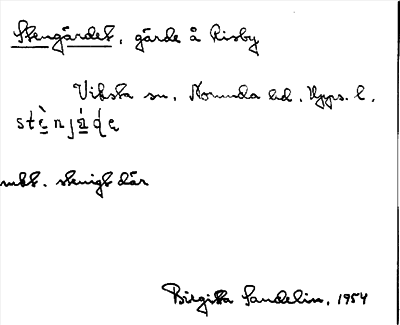 Stengärdet, gärde å Risby
Viksta sn, Norunda hd, Upps. l.
stènjä́ḍe
mkt. stenigt där
Birgitta Sandelin, 1954